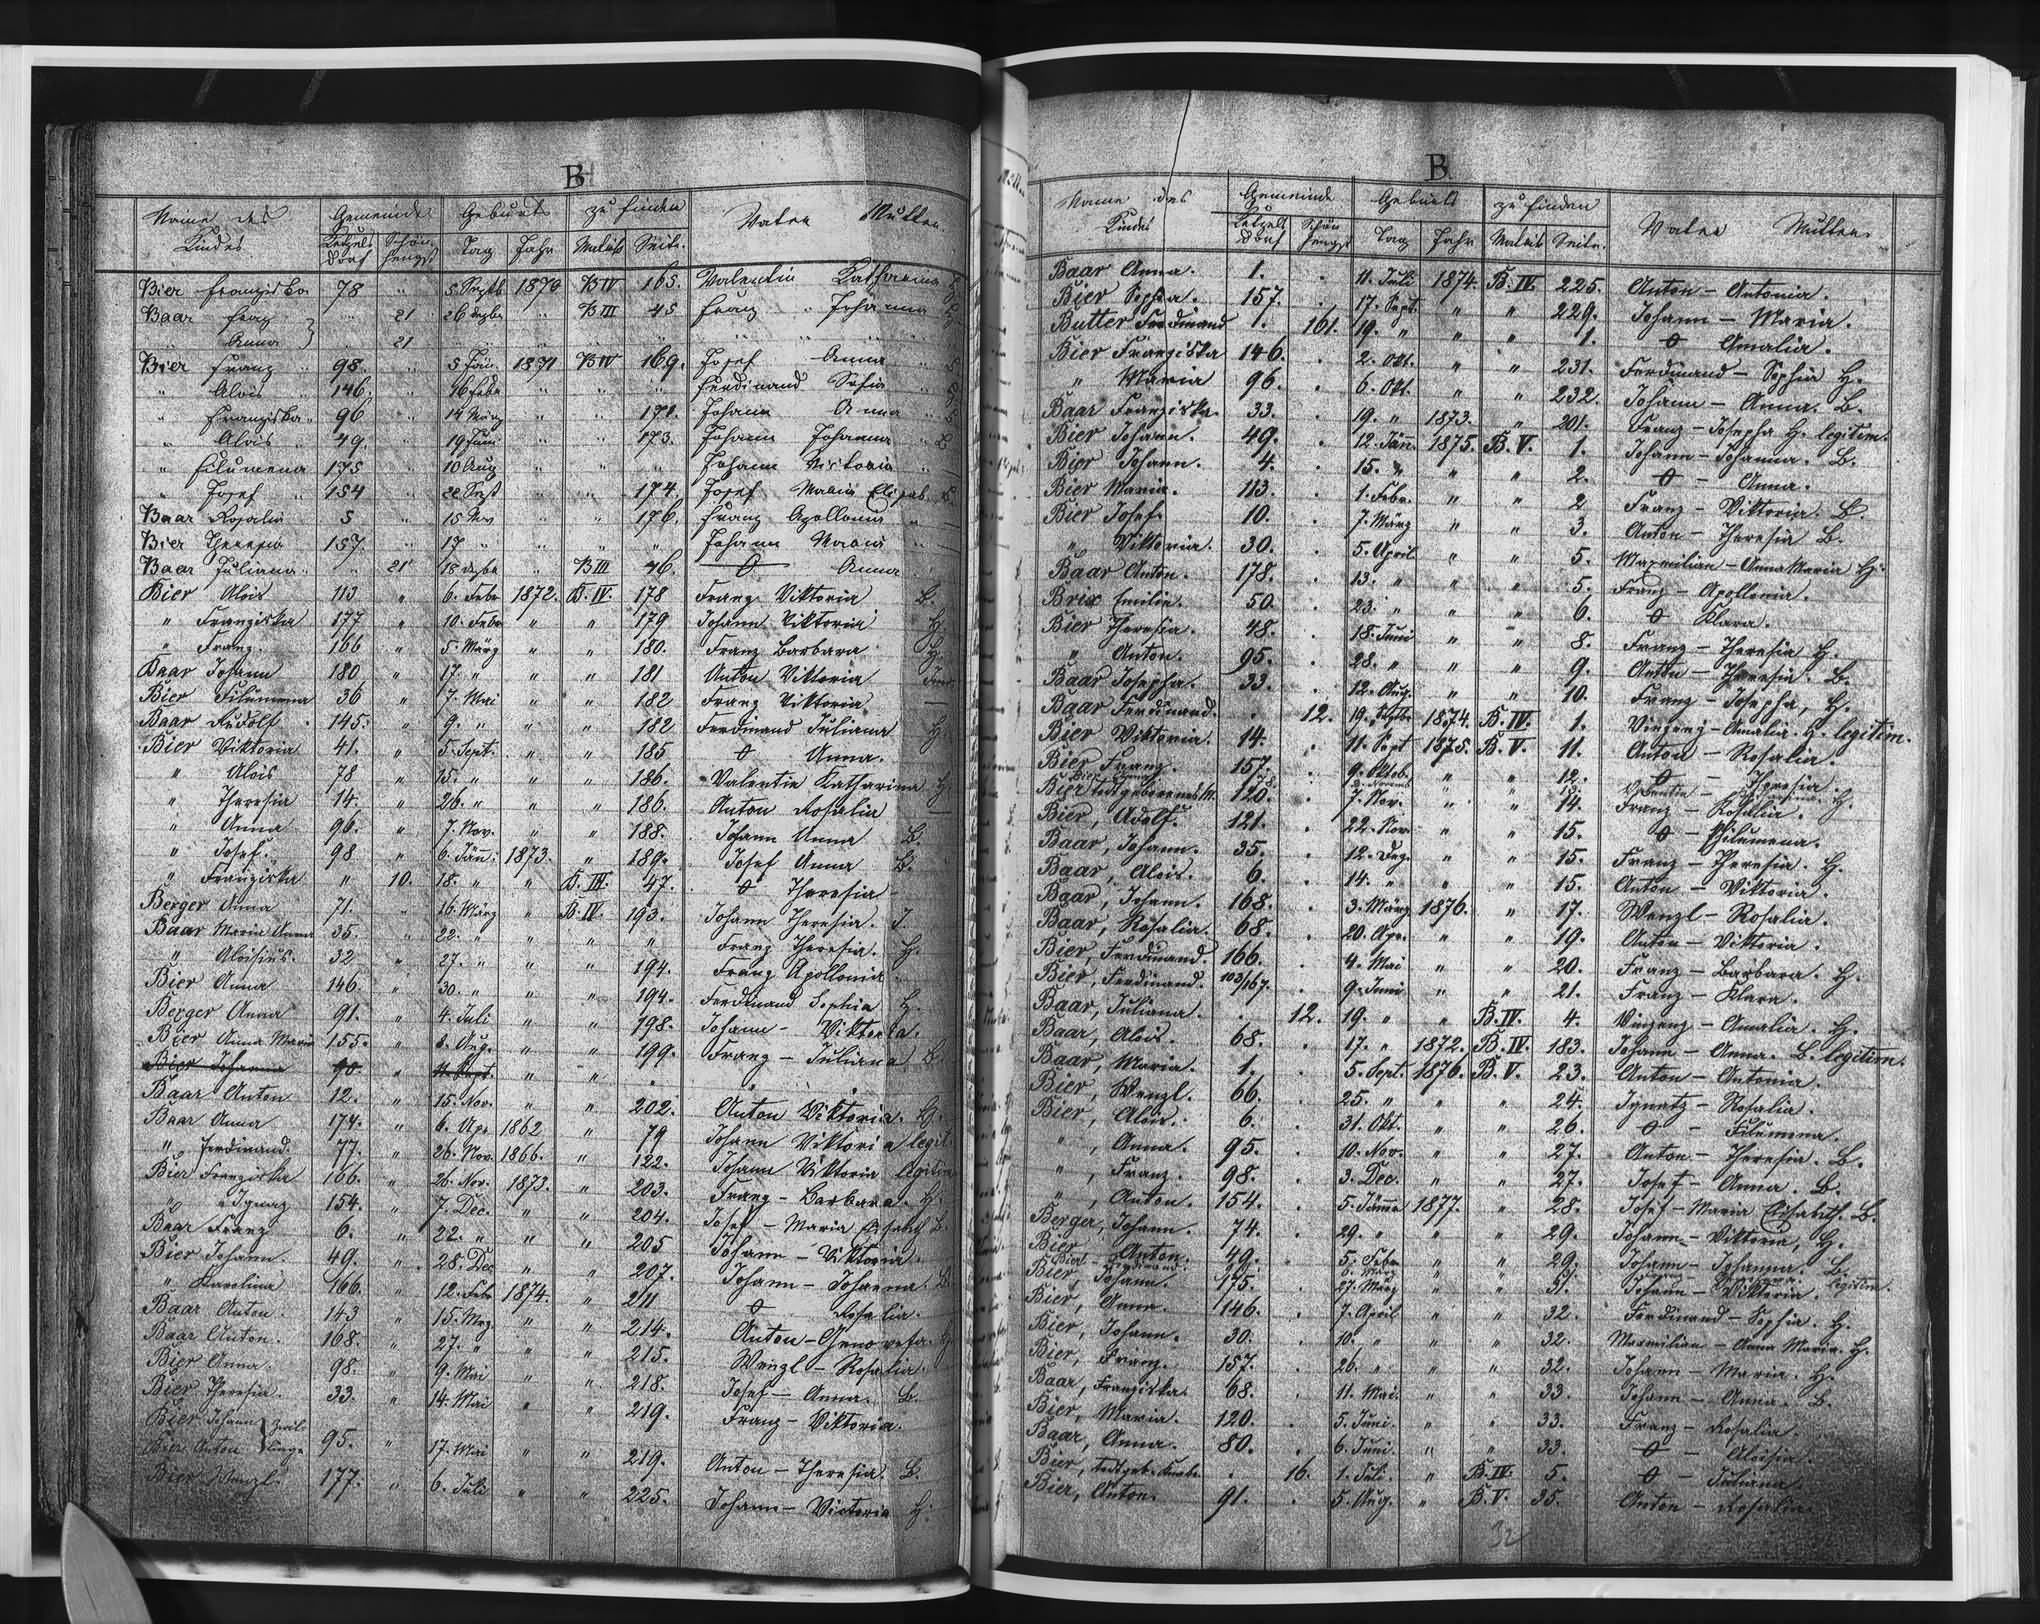 B
Name des Kindes Gemeinde Geburts zu finden Vater Mutter
Letzels dorf Schön hengst Tag Jahr Matrik Seite
Bier Franziska 78 " 5 Septb 1870 B IV 165. Valentin Katharina
Baar Franz " 21 26 Dezbr " B III 45 Franz " Johanna
" Anna } 21 " " " "
Bier Franz " 98. " 5 Jän. 1871 B IV 169. Josef Anna
" Alois " 146. " 16 Febr " " " Ferdinand Sofia
" Franziska " 96 " 14 März " " 171. Johann Anna
" Alois " 49. " 19 Juni " " 173. Johann Johanna B
" Filumena 175 " 10 Aug " " " Johann Victoria
" Josef " 154 " 22 Sept " " 174. Josef Maria Elisab.
Baar Rosalia 5 " 15 Nov " " 176. Franz Apollonia "
Bier Theresia 157. " 17 " " " " Johann Maria
Baar Juliana " " 21 18 dezbr " B III 46. 0 Anna
Bier Alois 113 " 6. Febr 1872. B. IV. 178 Franz Viktoria B.
" Franziska 177 " 10. Febr " " 179 Johann Viktoria H.
" Franz. 166 " 5. März " " 180. Franz Barbara H.
Baar Johann 180 " 17. " " " 181 Anton Viktoria
Bier Filumena 36 " 7. Mai " " 182 Franz Viktoria —
Baar Rudolf 145. " 9. " " " 182 Ferdinand Juliana H.
Bier Viktoria 41. " 5. Sept. " " 185 0 Anna.
" Alois 78 " 15. " " " 186. Valentin Katharina H.
" Theresia 14. " 26. " " " 186. Anton Rosalia —
" Anna 96. " 7. Nov. " " 188. Johann Anna B.
" Josef. 98 " 6. Jän. 1873. " 189. Josef Anna B.
" Franziska " 10. 18. " " B. III. 47. 0 Theresia
Berger Anna 71. " 16. März " B. IV. 193. Johann Theresia. J.
Baar Maria Anna 35. " 22. " " " " Franz Theresia. H.
" Aloisius. 32 " 27. " " " 194. Franz Apollonia
Bier Anna 146. " 30. " " " 194. Ferdinand Sophia H.
Berger Anna 91. " 4. Juli " " 198. Johann - Viktoria.
Bier Anna Maria 155. " 8. Aug. " " 199. Franz - Juliana B.
Bier Johanna 90. " 11. Sept. " "
Baar Anton 12. " 15. Nov. " " 202. Anton Viktoria. H.
Baar Anna 174. " 6. Apr. 1862 " 79 Johann Viktoria legit.
" Ferdinand. 77. " 26. Nov. 1866. " 122. Johann Viktoria legitim
Bier Franziska 166. " 26. Nov. 1873. " 203. Franz - Barbara. H.
" Ignaz 154. " 7. Dec. " " 204. Josef - Maria Elisabet B.
Baar Franz 6. " 22. " " " 205 Johann - Viktoria.
Bier Johann. 49. " 28. Dec " " 207. Johann - Johanna. B.
" Karolina 166. " 12. Febr 1874. " 211 0 Rosalia.
Baar Anton. 143 " 15. Mrz. " " 214. Anton - Genovefa. H
Baar Anton. 168. " 27. " " " 215. Wenzl - Rosalia.
Bier Anna. 98. " 9. Mai " " 218. Josef - Anna. B.
Bier Theresia. 33. " 14. Mai " " 219. Franz - Viktoria.
Bier Johann } Zwil-
Bier Anton } linge 95. " 17. Mai " " 219. Anton - Theresia. B.
Bier Wenzl. 177. " 6. Juli " " 225. Johann - Victoria H.
B.
Name des Kindes Gemeinde Geburts zu finden Vater Mutter
Letzels dorf Schön hengst Tag Jahr Matrik Seite.
Baar Anna. 1. . 11. Juli 1874. B. IV. 225. Anton - Antonia.
Bier Sophia. 157. . 17. Sept. " " 229. Johann - Maria.
Butter Ferdinand 1. 161. 19. " " " 1. 0 Amalia.
Bier Franziska 146. . 2. Okt. " " 231. Ferdinand - Sophia H.
" Maria 96. . 6. Okt. " " 232. Johann - Anna. B.
Baar Franziska. 33. . 19. " 1873. " 201. Franz - Josepha H. legitim.
Bier Johann. 49. . 12. Jänn. 1875. B. V. 1. Johann - Johanna. B.
Bier Johann. 4. . 15. " " " 2. 0 - Anna.
Bier Maria. 113. . 1. Febr. " " 2 Franz - Viktoria. B.
Bier Josef. 10. . 7. März " " 3. Anton - Theresia B.
" Viktoria. 30. . 5. April " " 5. Maxmilian - Anna Maria H.
Baar Anton. 178. . 13. " " " 5. Franz - Apollonia.
Brix Emilie. 50. . 23. " " " 6. 0 Klara.
Bier Theresia. 48. . 18. Juni " " 8. Franz - Theresia H.
" Anton. 95. . 28. " " " 9. Anton - Theresia. B.
Baar Josepha. 33. . 12. Aug. " " 10. Franz - Josepha, H.
Baar Ferdinand. . 12. 19. Septb. 1874. B. IV. 1. Vinzenz - Amalia. H. legitim.
Bier Viktoria. 14. . 11. Sept 1875. B. V. 11. Anton - Rosalia.
Bier Franz. 157. . 9. Oktob. " " 12. 0 - Theresia.
Bier todtgeborenes M. 120. . 7. Nov. " " 14. Franz - Rosalia. H.
Bier, Adolf. 121. . 22. Nov. " " 15. 0 - Philumena.
Baar, Johann. 35. . 12. Dez. " " 15. Franz - Theresia. H.
Baar, Alois. 6. . 14. " " " 15. Anton - Viktoria.
Baar, Johann. 168. . 3. März 1876. " 17. Wenzl - Rosalia.
Baar, Rosalia. 68. . 20. Apr. " " 19. Anton - Viktoria.
Bier, Ferdinand. 166. . 4. Mai " " 20. Franz - Barbara. H.
Bier, Ferdinand. 103/167. . 9. Juni " " 21. Franz - Klara.
Baar, Juliana. . 12. 19. " " B. IV. 4. Vinzenz - Amalia. H.
Baar, Alois. 68. . 17. " 1872. B. IV. 183. Johann - Anna. B. legitim.
Baar, Maria. 1. . 5. Sept. 1876. B. V. 23. Anton - Antonia.
Bier, Wenzl. 66. . 25. " " " 24. Ignatz - Rosalia.
Bier, Alois. 6. . 31. Okt. " " 26. 0 - Filumena.
" , Anna. 95. . 10. Nov. " " 27. Anton - Theresia. B.
" , Franz. 98. . 3. Dec. " " 27. Josef - Anna. B.
" , Anton. 154. . 5. Jänner 1877. " 28. Josef - Maria Elisabeth. B.
Berger, Johann. 74. . 29. " " " 29. Johann - Viktoria, H.
Bier Anton. 49. . 5. Febr. " " 29. Johann - Johanna. B.
Bier, Johann. 175. . 27. März " " 31. Johann - Viktoria. legitim.
Bier, Anna. 146. . 7. April " " 32. Ferdinand - Sophia. H.
Bier, Johann. 30. . 10. " " " 32. Maxmilian - Anna Maria. H.
Bier, Franz. 157. . 26. " " " 32. Johann - Maria. H.
Baar, Franziska. 68. . 11. Mai. " " 33. Johann - Anna. B.
Bier, Maria. 120. . 5. Juni. " " 33. Franz - Rosalia.
Baar, Anna. 80. . 6. Juni. " " 33. 0 - Aloisia.
Bier, todtgeb. Knabe. . 16. 1. Juli. " B. IV. 5. 0 - Juliana.
Bier, Anton. 91. . 5. Aug. " B. V. 35. Anton - Rosalia.
32